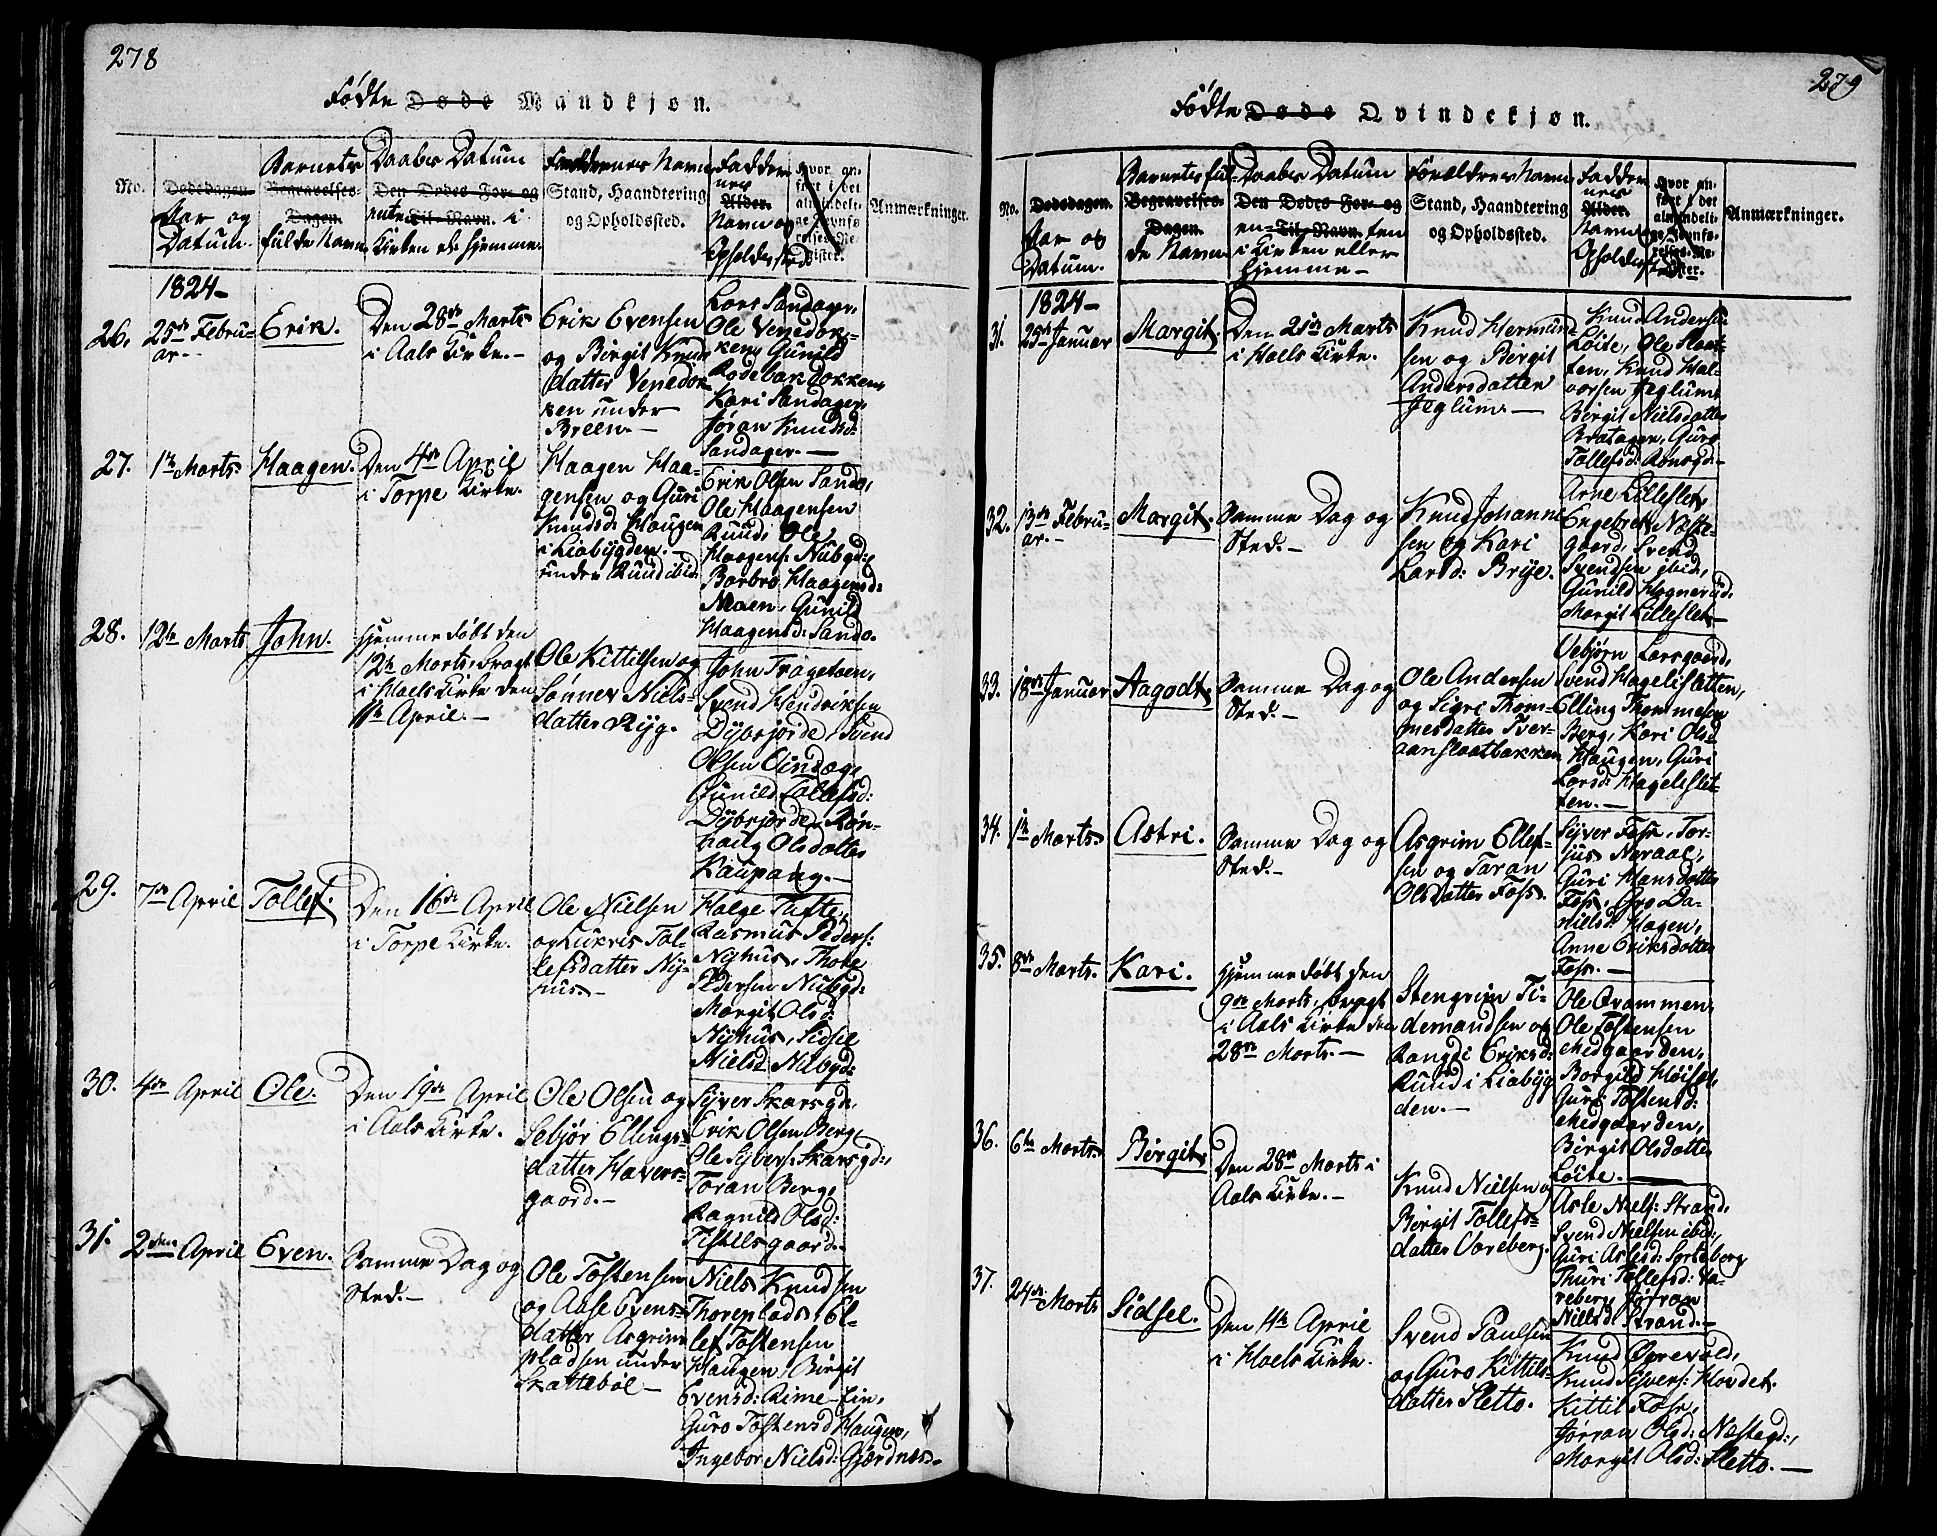 278
Fødte Døde Mandkjøn.
No.
Dødsdagen.
Aar og
Datum.
Barnets
Begravelses-
Dagen.
fulde Navn
Daabs Datum
Den Dødes For- og
enten Til-Navn. i
Kirken el: hjemme.
Forældrenes Navn
Stand, Haandtering
og Opholdssted.
Fadder
nes
Alder.
Navn og
Opholdssted
Hvor an-
ført i det
almindeli-
ge Jevnfø-
relses-Re-
gister.
Anmærkninger.
1824-
26.
25de Febru-
ar.-
Erik.
Den 28de Marts
i Aals Kirke.-
Erik Evensen
og Birgit Knud
datter Venedok
ken under
Breen.-
Lars Sandager,
Ole Venedok-
ken, Gunild
Rodebakdokken,
Kari Sandager,
Jøran Knudsd:
Sandager.-
27.
1te Marts
Haagen.
Den 4de April
i Torpe Kirke.
Haagen Haa-
gensen og Guri
Knudsd: Haugen
i Liabygden.-
under Ruud ibid.
Erik Olsen Sando,
Ole Haagensen
Ruud, Ole
Haagens: Nubgd:,
Barbro Haagensd:
Moen, Gunild
Haagensd: Sando.
28.
12te Marts
John.
Hjemmedøbt den
12te Marts, bragt
i Hoels Kirke den
11te April.-
Ole Kittilsen og
Sønnev Niels-
datter Ryg.
John Trageteen,
Svend Hendriksen
Dybsjorde, Svend
Olsen Oindage,
Gunild Tollefsd:
Dybsjorde, Røn-
naug Olsdatter
Kaupang.-
29.
7de April
Tollef.
Den 16de April
i Torpe Kirke.
Ole Nielsen
og Lukris Tol-
lefsdatter Ny-
huus.-
Holge Tufte,
Rasmus Peders:
Nyhus, Thore
Pedersen Nubgd:
Margit Olsd:
Nyhus, Sidsel
Nielsd: Nubgd:
30.
4de April
Ole.
Den 19de April
i Aals Kirke.
Ole Olsen og
Sebjør Ellings-
datter Havers-
gaard.-
Syver Skarsgd:,
Erik Olsen Berg,
Ole Syvers: Skarsgd:,
Toran Berg,
Ragnild Olsd:
Tistilsgaard.-
31.
2den April
Even.
Samme Dag og
Sted.-
Ole Tostensen
og Aase Evens-
datter Asgrim
pladsen under
Skattebøl-
Niels Knudsen
Thoreplads, El-
lef Tostensen
Haugen, Birgit
Evensd: Rime-Ein,
Guro Tostensd: Haugen,
Ingebor Nielsd: Gjærdnesd-
279
Fødte Døde Qvindekjøn.
No.
Dødsdagen.
Aar og
Datum.
Barnets ful-
Begravelses-
Dagen.
de Navn
Daabs Datum
Den Dødes For- og
en- Til-Navn. ten
i Kirken eller
hjemme-
Forældrenes Navn
Stand, Haandtering
og Opholdssted.
Fadder
nes
Alder.
Navn
Opholdsted
Hvor an-
ført i det
almindeli-
ge Jevnfø-
relses-Re-
gister.
Anmærkninger.
1824-
31.
25de Januar
Margit.
Den 21de Marts
i Hoels Kirke.
Knud Hermun-
sen og Birgit
Andersdatter
Jeglum.-
Knud Andersen
Løite, Ole Slaat-
ten, Knud Hal-
vorsen Jeglum,
Birgit Nielsdatter
Bratagen, Guro
Tollefsd: Aasegd-
32.
13de Febru-
ar.-
Margit.
Samme Dag og
Sted.-
Knud Johanne
sen og Kari
Larsd: Brye.
Arne Lilleslet,
Engebret Næste-
gaard, Svend
Svendsen ibid,
Gunild Hognerud,
Margit Lilleslet-
33.
18de Januar
Aagodt.
Samme Dag og
Sted.-
Ole Andersen
og Sigri Thom-
mesdatter Tver-
aanslaatbakken
Vebjørn Larsgaard,
Svend Hagelisletten,
Elling Thommesen
Berg, Kari Olsd
Haugen, Guri
Larsd: Hagelislet-
ten.-
34.
1te Marts.
Astri.
Samme Dag og
Sted.-
Asgrim Ellef-
sen og Taran
Olsdatter Foss.
Syver Foss, Tor-
jus Noraal,
Guri Hansdatter
Foss, Gro Da-
nielsd: Hagen,
Anne Eriksdatter
Foss.-
35.
8de Marts.
Kari.
Hjemmedøbt den
9de Marts, bragt
i Aals Kirke den
28de Marts.-
Stengrim Ti-
demandsen og
Rangdi Eriksd:
Ruud i Liabyg
den.-
Ole Qvammen,
Ole Tostensen
Medgaarden,
Borgild Høiset,
Guri Tostensd:
Medgaarden,
Birgit Olsdatter
Løite.-
36.
6te Marts.
Birgit.
Den 28de Marts i
Aals Kirke.-
Knud Nielsen og
Birgit Tollefs-
datter Voreberg.
Asle Niels: Strand,
Svend Nielsen ibd:,
Guri Aslesd: Sorteberg
Thuri Tollefsd: Vo-
reberg, Jørran
Nielsd: Strand.-
37.
24de Marts
Sidsel.
Den 11te April
i Hoels Kirke.
Svend Paulsen
og Guro Kittils-
datter Sletto.
Knud Ørevold,
Knud Syvers: Hovdet,
Kittil Foss,
Jørran Olsd: Næstegd:,
Margit Olsd: Sletto.-